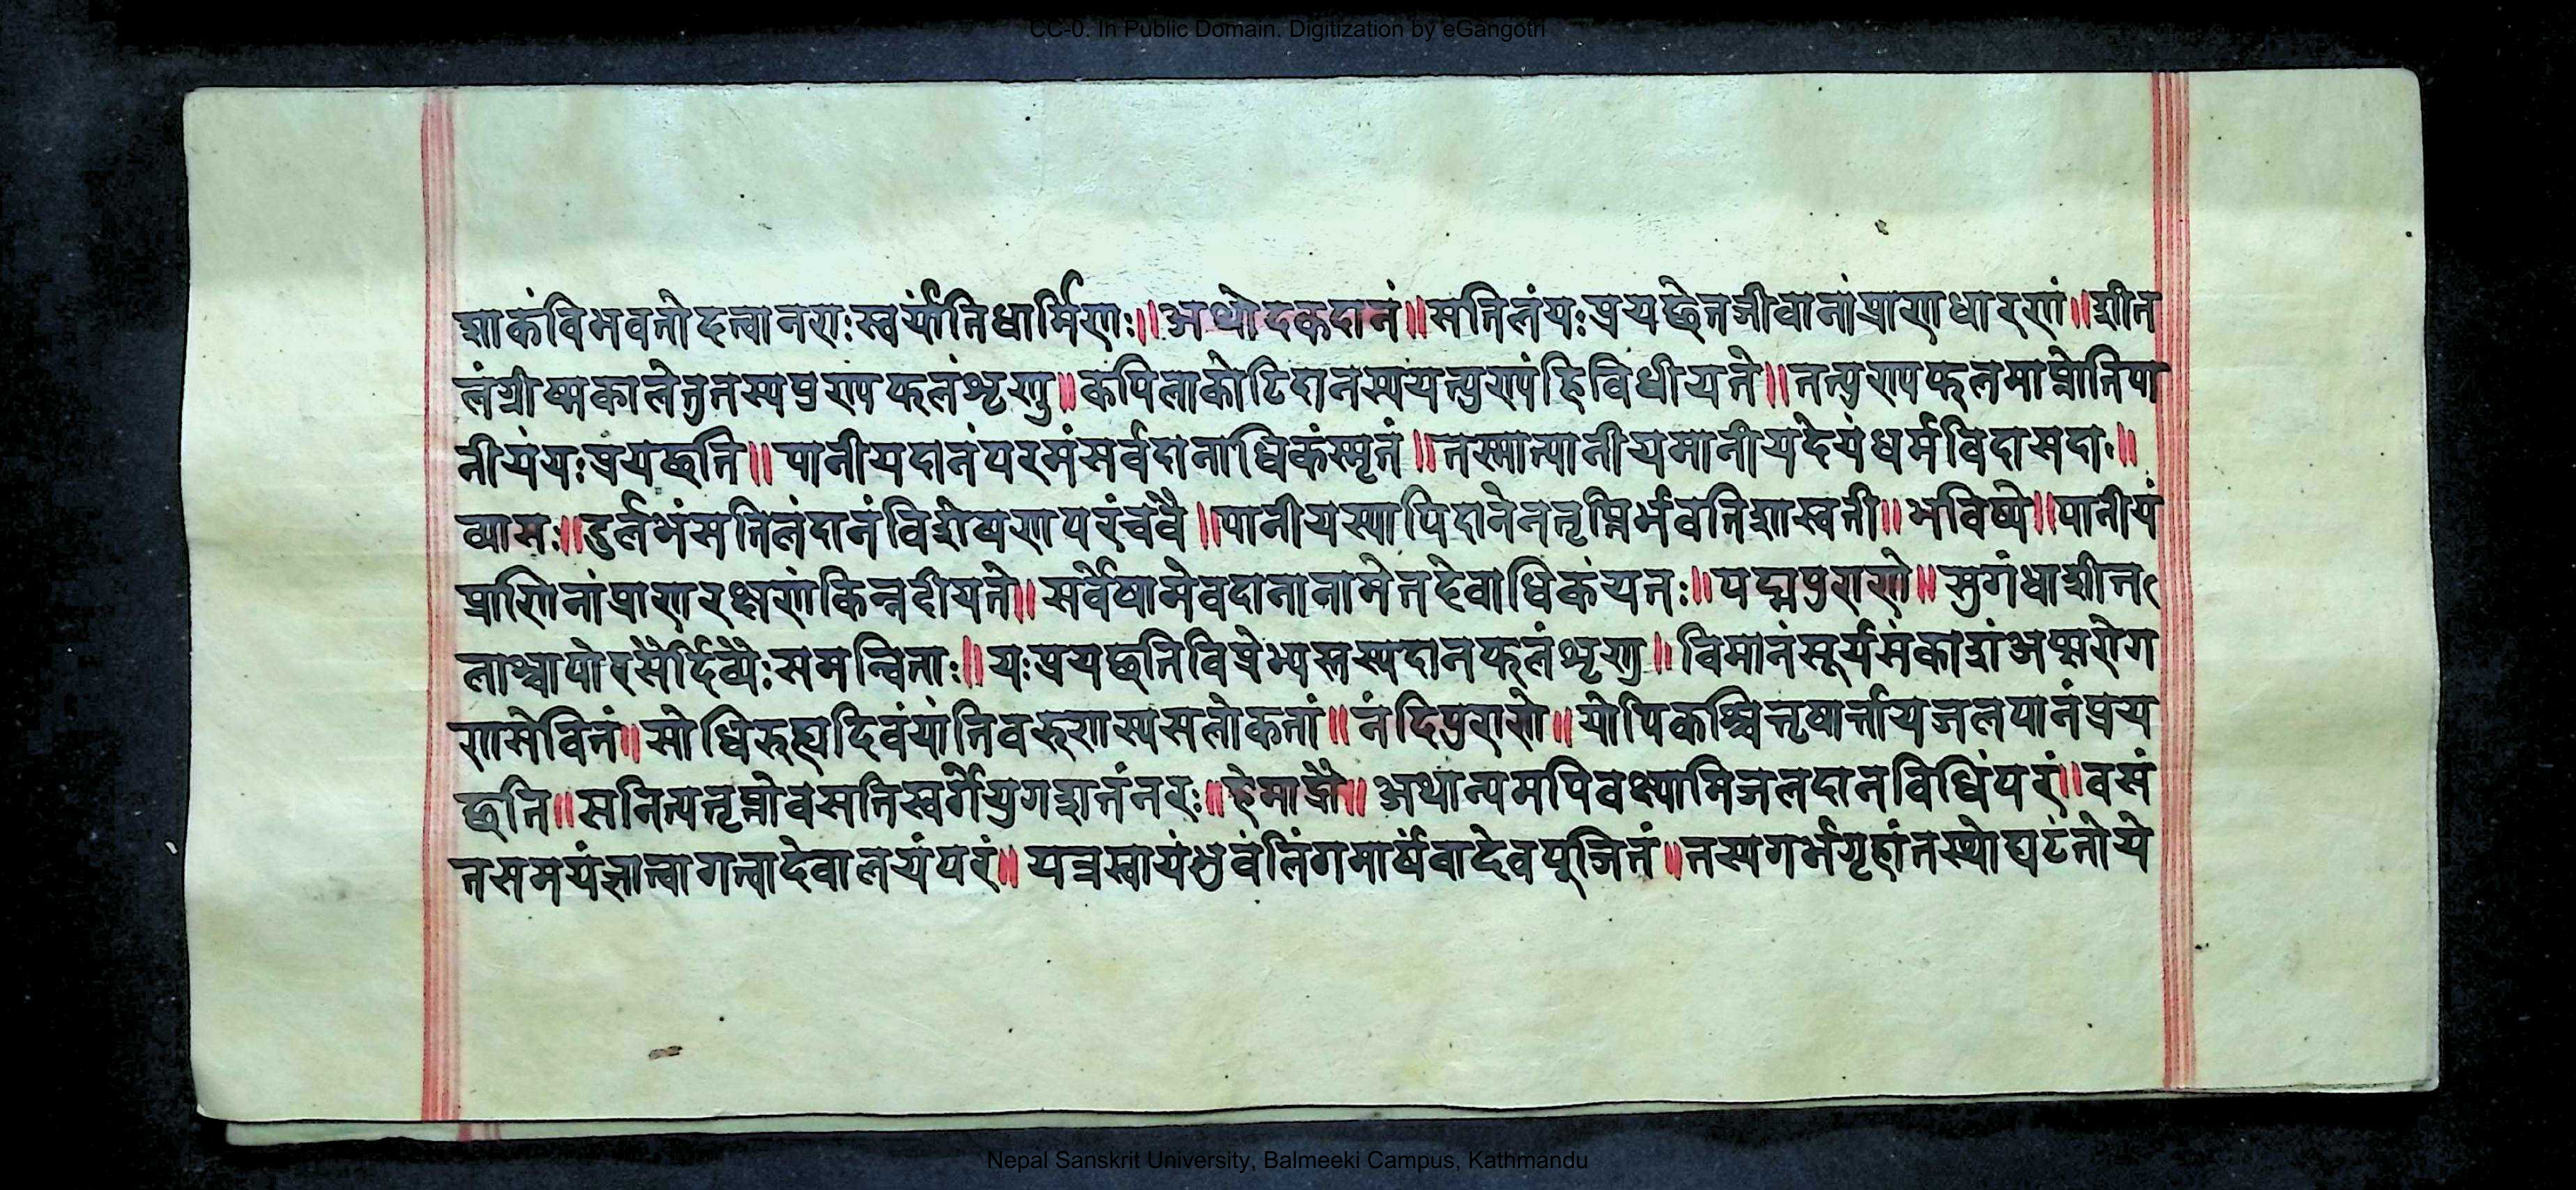 CC-0. In Public Domain. Digitization by eGangotri
शाकंविभवतोदत्वानराःस्वर्यांतिधार्मिणः॥अथोदकदानं॥सतिलंयःप्रयछेतजीवानांप्राणधारणं॥शीत
लंग्रीष्मकालेतुतस्यपुण्यफलंशृणु॥कपिलाकोटिदानस्ययत्पुण्यंहिविधीयते॥तत्पुण्यफलमाप्नोतिपा
नीयंयःप्रयछति॥पानीयदानंपरमंसर्वदानाधिकंस्मृतं॥तस्मात्पानीयमानीयदेयंधर्मविदासदाः॥
व्यासः॥दुर्लभंसतिलंदानंविशेषेणपरंचवै॥पानीयस्यापिदानेनतृप्तिर्भवतिशास्वती॥भविष्ये॥पानीयं
प्राणिनांप्राणरक्षणंकिन्नदीयते॥सर्वेषामेवदानानामेतदेवाधिकंयतः॥पद्मपुराणे॥सुगंधाशीत
लाश्चापोरसैर्दिव्यैःसमन्विताः॥यःप्रयछतिविप्रेभ्यस्तस्यदानफलंशृणु॥विमानंसूर्यसंकाशंअप्सरोग
णसेवितं॥सोधिरुह्यदिवंयांतिवरुणस्यसलोकतां॥नंदिपुराणे॥योपिकश्चित्तृषार्त्तायजलपानंप्रय
छति॥सनित्यतृप्तोवसतिस्वर्गेयुगशतंनरः॥हेमाद्रौ॥अथान्यमपिवक्ष्यामिजलदानविधिंपरं॥वसं
तसमयंज्ञात्वागत्वादेवालयंपरं॥यत्रस्वायंभुवंलिंगमार्षंवादेवपूजितं॥तस्यगर्भगृहांतस्थोद्यटंतोये
Nepal Sanskrit University, Balmeeki Campus, Kathmandu